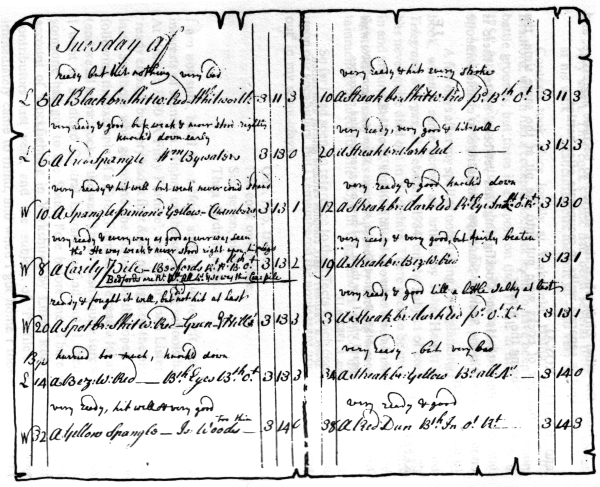 Tuesday Af
ready but hit nothing very bad
L 5 A Black br: Shit w: Red Whitworth 3 11 3
very ready & good but weak & never stood rightly
knock'd down early
L 6 A Spangle Wm Bywaters 3 13 0
very ready & hit well but weak never cou'd stand
W 10 A Spangle pinion'd Yellow 3 13 1
very ready & every way as good as ever was seen
tho' He was weak & never stood right upon
W 8 A Pile Bedfords 3 13 2
Bedfords & was this Pile
ready & fought it well, but not hit at last
W 20 A Spot br: Shit w: Red Green 3 13 3
hurried too much, knock'd down
L 14 A Bez: W: Red Bth Eyes Bth Ot 3 13 3
very ready, hit well & very good
too thin
W 32 A Yellow Spangle Is: Woods 3 14 0
very ready & hit every stroke
10 A Streak br: Shit w: Red Bth Ot 3 11 3
very ready, very good & hit well
20 A Streak br: dark Red 3 12 3
very ready & good knock'd down
12 A Streak br: dark Red Rt Eye 3 13 0
very ready & very good, but fairly beaten
19 A Streak br: Bez: W: Red 3 13 1
very ready & good till a little at last
3 A Streak br: dark red 3 13 1
very ready but very bad
34 A Streak br: Yellow 3 14 0
very ready & good
38 A Red Dun Bth In Ot Rt 3 14 3